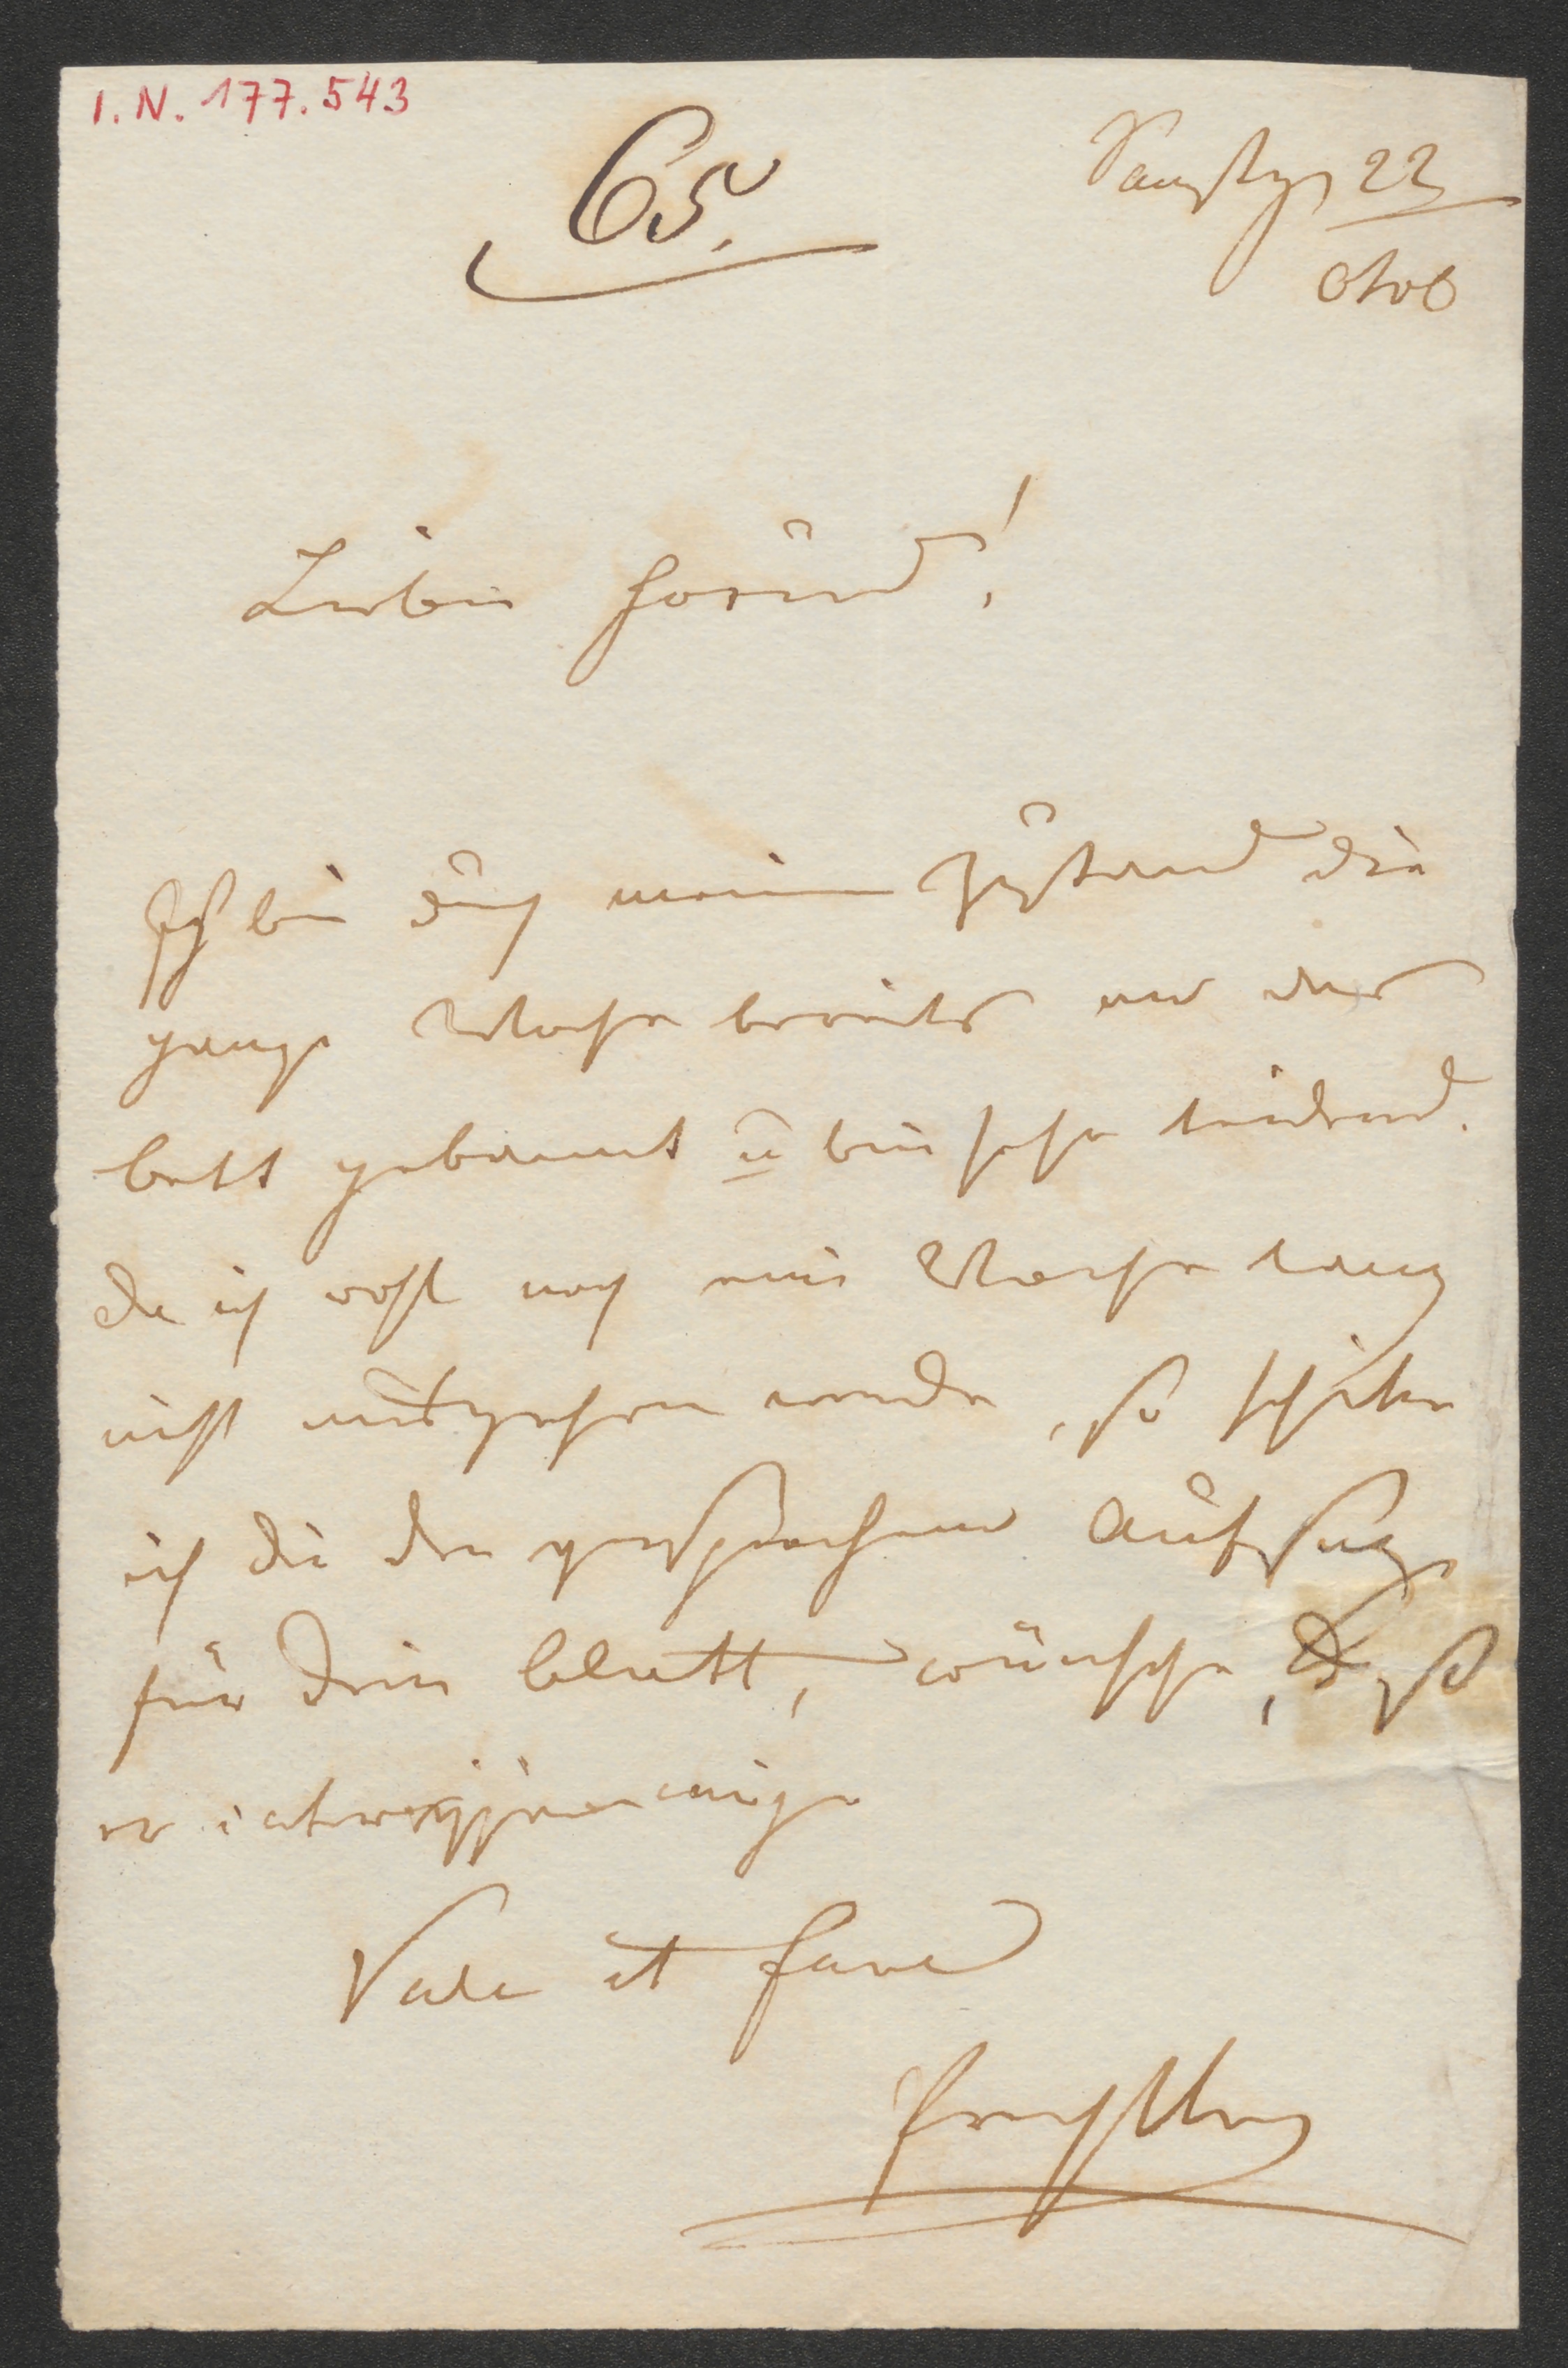 I.N. 177.543
65.
Samstag 22
Lieber Freund!
Ich bin durch meinen Zustand die
ganze Woche bereits an das
bett gebannt u bin sehr leidend.
da ich wohl noch eine Woche lang
nicht ausgehen werde, so schicke
ich dir den versprochenen Aufsatz
für Dein blatt, wünsche, daß
er
Vale et fave